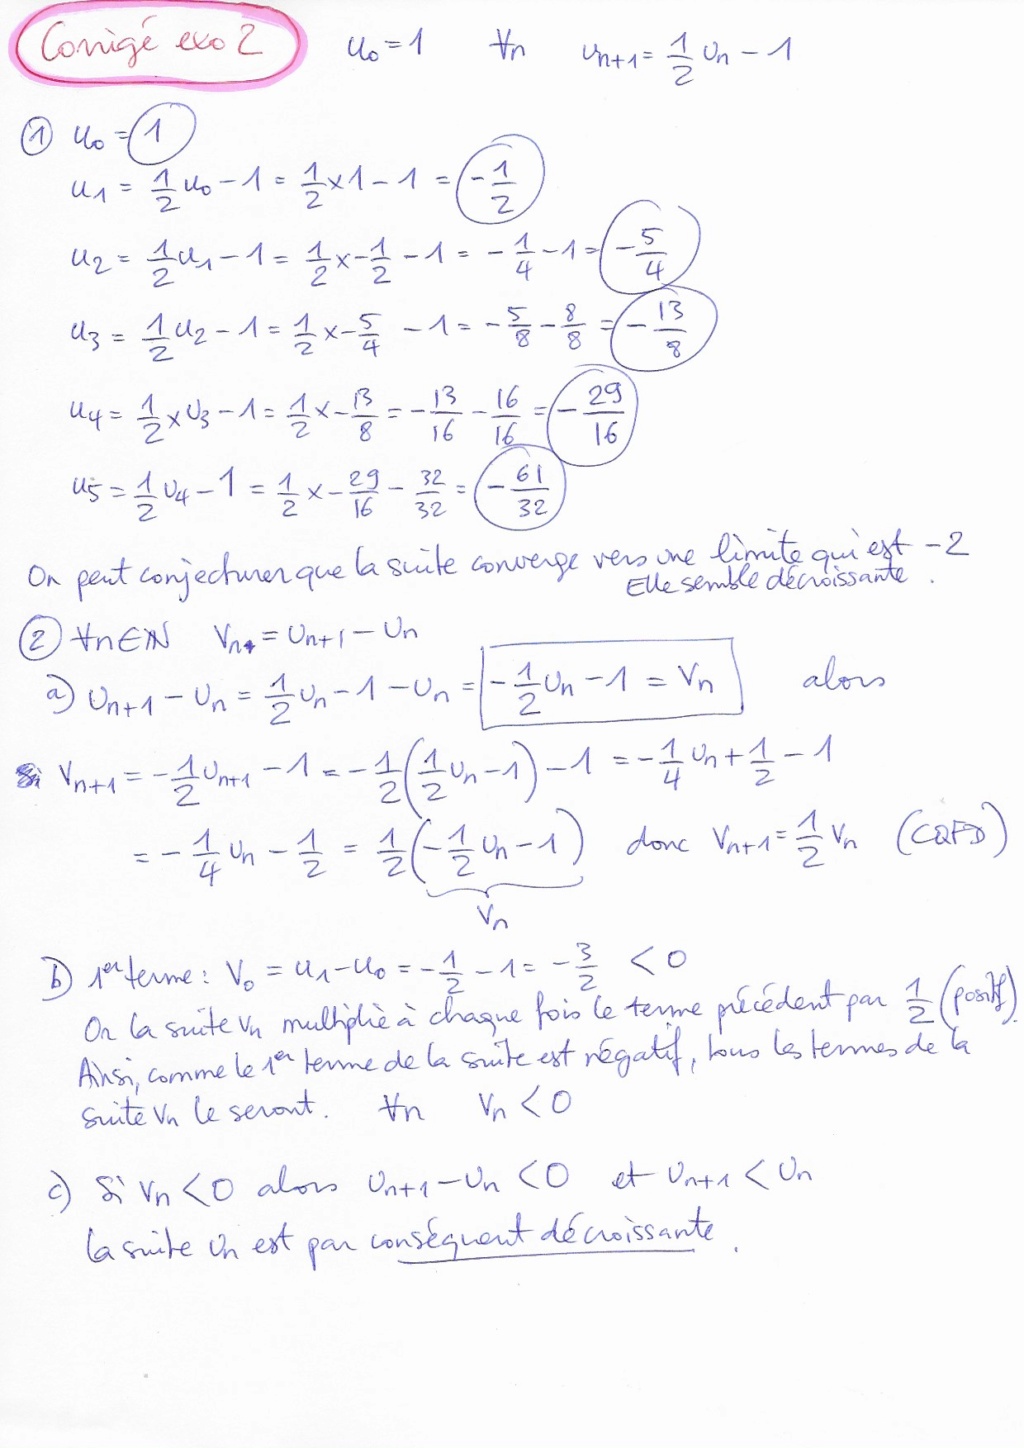 Corrigé exo 2 u₀ = 1 ∀n uₙ₊₁ = 1/2 uₙ − 1
① u₀ = 1
u₁ = 1/2 u₀ − 1 = 1/2 × 1 − 1 = −1/2
u₂ = 1/2 u₁ − 1 = 1/2 × −1/2 − 1 = −1/4 − 1 = −5/4
u₃ = 1/2 u₂ − 1 = 1/2 × −5/4 − 1 = −5/8 − 8/8 = −13/8
u₄ = 1/2 × u₃ − 1 = 1/2 × −13/8 = −13/16 − 16/16 = −29/16
u₅ = 1/2 u₄ − 1 = 1/2 × −29/16 − 32/32 = −61/32
On peut conjecturer que la suite converge vers une limite qui est −2
Elle semble décroissante.
② ∀n∈ℕ Vₙ = Uₙ₊₁ − Uₙ
a) Uₙ₊₁ − Uₙ = 1/2 Uₙ − 1 − Uₙ = −1/2 Uₙ − 1 = Vₙ alors
Vₙ₊₁ = −1/2 Uₙ₊₁ − 1 = −1/2 (1/2 Uₙ − 1) − 1 = −1/4 Uₙ + 1/2 − 1
= −1/4 Uₙ − 1/2 = 1/2 (−1/2 Uₙ − 1) donc Vₙ₊₁ = 1/2 Vₙ (CQFD)
Vₙ
b) 1er terme : V₀ = u₁ − u₀ = −1/2 − 1 = −3/2 < 0
Or la suite Vn multiplie à chaque fois le terme précédent par 1/2 (positif).
Ainsi, comme le 1er terme de la suite est négatif, tous les termes de la
suite Vn le seront. ∀n Vₙ < 0
c) Si Vₙ < 0 alors Uₙ₊₁ − Uₙ < 0 et Uₙ₊₁ < Uₙ
la suite Un est par conséquent décroissante.